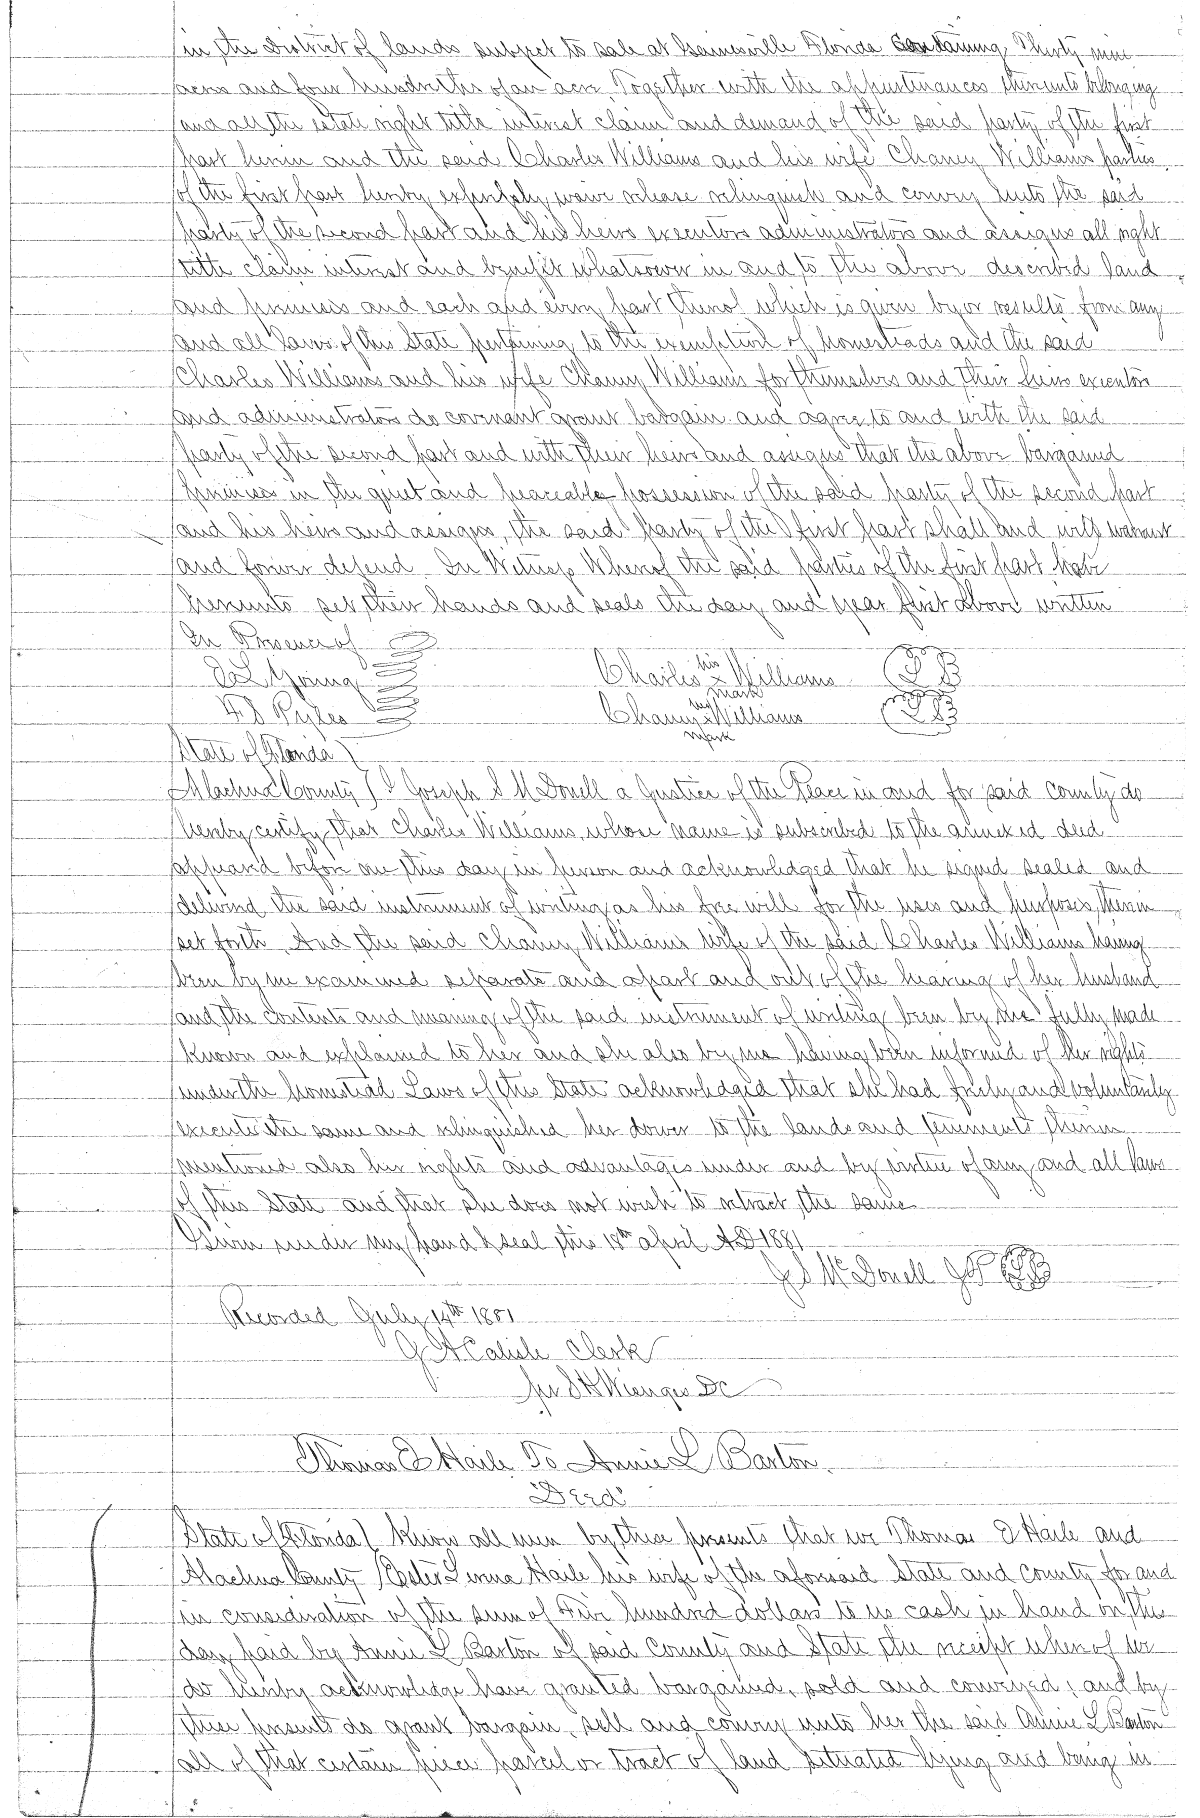 in the District of lands subject to sale at Gainesville Florida Containing Thirty nine
acres and four hundredths of an acre Together with the appurtenances thereunto belonging
and all the estate right title interest claim and demand of the said party of the first
part herein and the said Charles Williams and his wife Chaney Williams parties
of the first part hereby expressly waive release relinquish and convey unto the said
party of the second part and his heirs executors administrators and assigns all right
title claim interest and benefit whatsoever in and to the above described land
and premises and each and every part thereof which is given by or results from any
and all Laws of this State pertaining to the exemption of homesteads and the said
Charles Williams and his wife Chaney Williams for themselves and their heirs executors
and administrators do covenant grant bargain and agree to and with the said
party of the second part and with their heirs and assigns that the above bargained
premises in the quiet and peaceable possession of the said party of the second part
and his heirs and assigns, the said party of the first part shall and will warrant
and forever defend In Witness Whereof the said parties of the first part have
hereunto set their hands and seals the day and year first above written
In Presence of
Young Charles his x mark Williams
Pyles Chaney her x mark Williams
State of Florida
Alachua County I Joseph S McDonell a Justice of the Peace in and for said county do
hereby certify that Charles Williams, whose name is subscribed to the annexed deed
appeared before me this day in person and acknowledged that he signed sealed and
delivered the said instrument of writing as his free will for the uses and purposes therein
set forth. And the said Chaney Williams wife of the said Charles Williams having
been by me examined separate and apart and out of the hearing of her husband
and the contents and meaning of the said instrument of writing been by me fully made
known and explained to her and she also by me having been informed of her rights
under the homestead Laws of this State acknowledged that she had freely and voluntarily
executed the same and relinquished her dower to the lands and tenements therein
mentioned also her rights and advantages under and by virtue of any and all laws
of this State and that she does not wish to retract the same
Given under my hand & seal this 18th april AD 1881
J S McDonell JP
Recorded July 14th 1881
Clerk
per DC
Thomas E Haile To Annie L Barton.
"Deed"
State of Florida Know all men by these presents that we Thomas E Haile and
Alachua County Haile his wife of the aforesaid State and county for and
in consideration of the sum of Five hundred dollars to us cash in hand on this
day paid by Annie L Barton of said County and State the receipt where of we
do hereby acknowledge have granted bargained, sold and conveyed, and by
these presents do grant bargain, sell and convey unto her the said Annie L Barton
all of that certain piece parcel or tract of land situated lying and being in